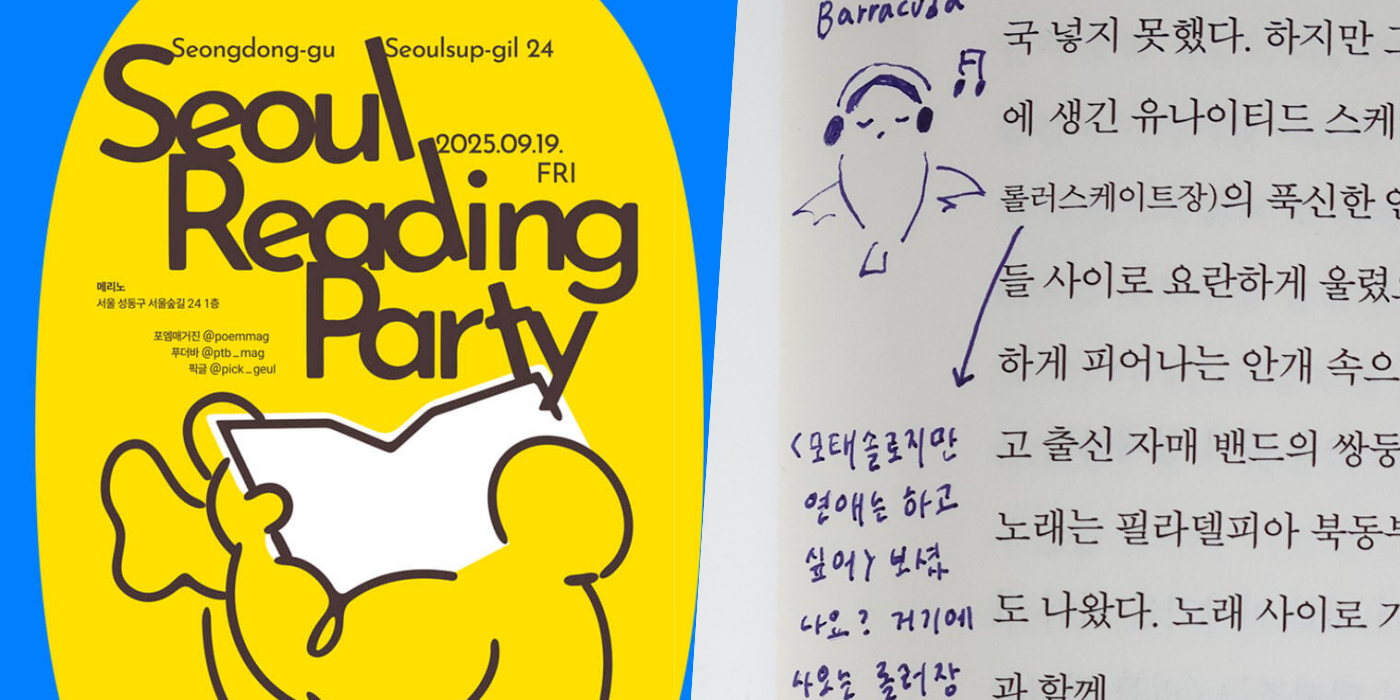 Seongdong-gu Seoulsup-gil 24
Seoul
2025.09.19.
FRI
Reading
Party
메리노
서울 성동구 서울숲길 24 1층
포엠매거진 @poemmag
푸더바 @ptb_mag
픽글 @pick_geul
Barracuda
국 넣지 못했다. 하지만
에 생긴 유나이티드 스케
롤러스케이트장)의 푹신한
들 사이로 요란하게 울렸
하게 피어나는 안개 속으
고 출신 자매 밴드의 쌍둥
노래는 필라델피아 북동
도 나왔다. 노래 사이로
과 함께
<모태솔로지만
연애는 하고
싶어> 보셨
나요? 거기에
나오는 롤러장